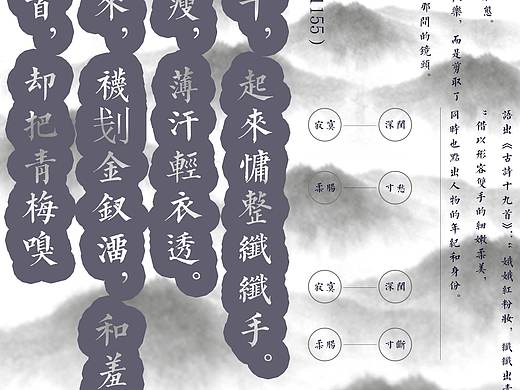 態。
樂，而是剪取了
那間的鏡頭。
1155）
語出《古詩十九首》：“娥娥紅粉妝，纖纖出
：借以形容雙手的細嫩柔美，
同時也點出人物的年紀和身份。
寂寞 深閨
柔腸 寸愁
寂寞 深閨
柔腸 寸斷
起來慵整纖纖手。
瘦，薄汗輕衣透。
來，襪刬金釵溜，和羞
首，却把青梅嗅